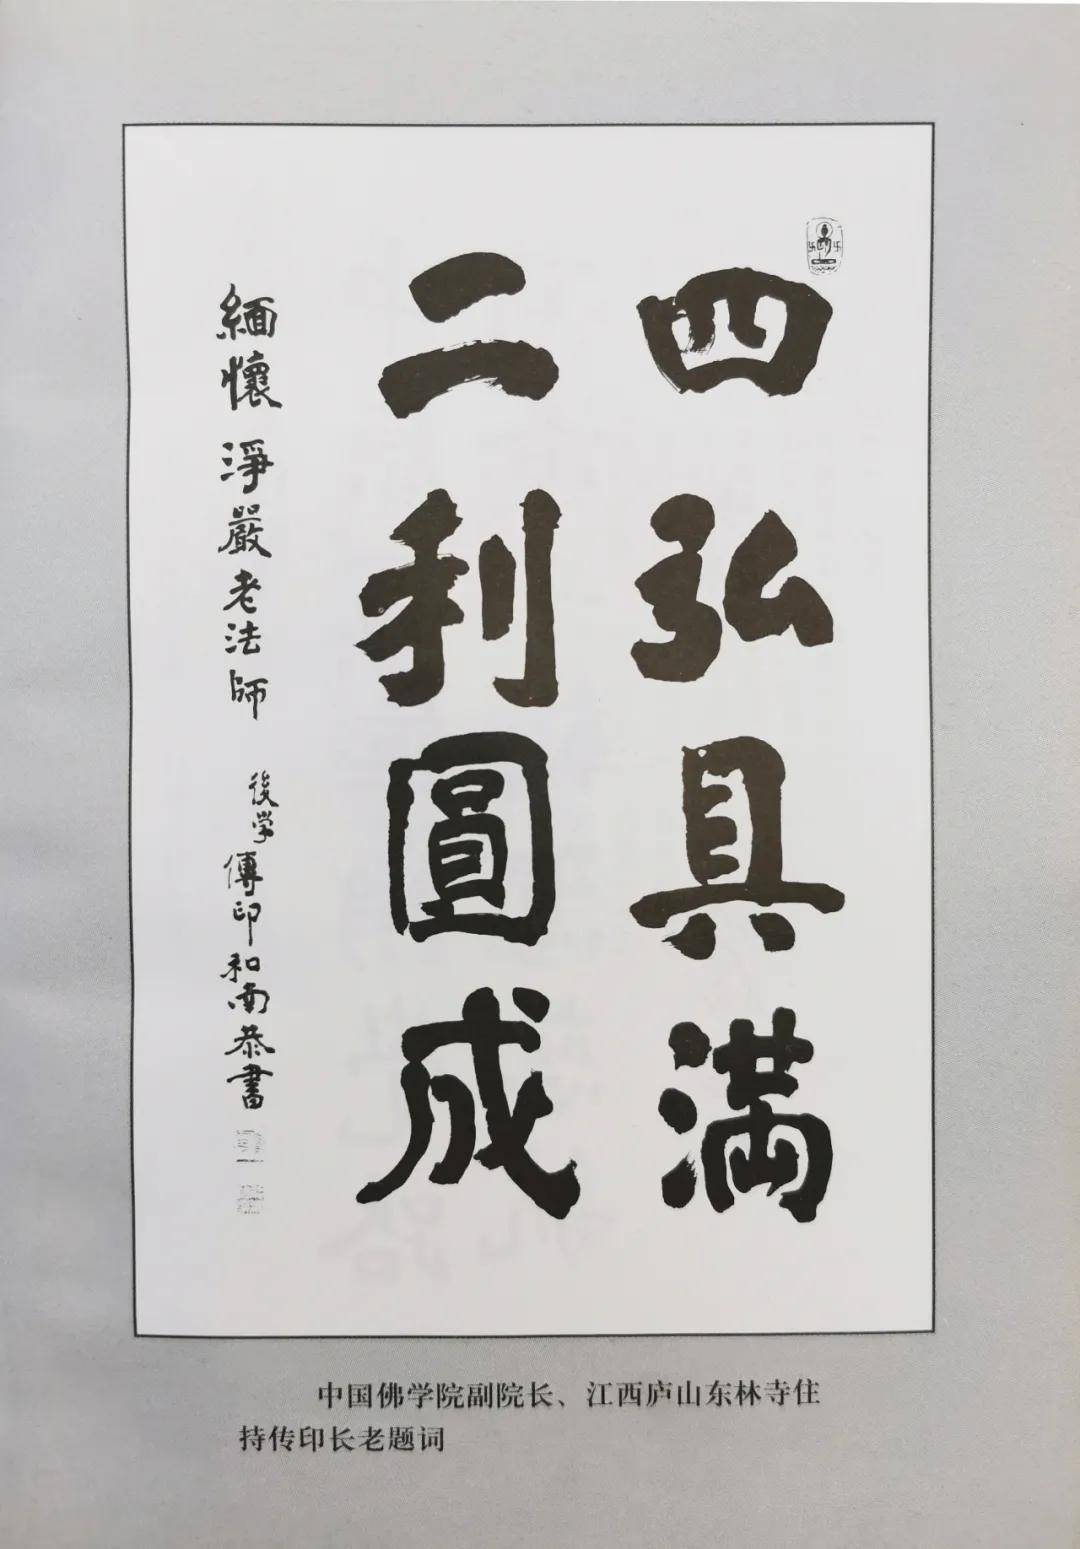 四弘具満
二利圓成
緬懷淨嚴老法師
後学傳印和南恭書
中国佛学院副院长、江西庐山东林寺住
持传印长老题词